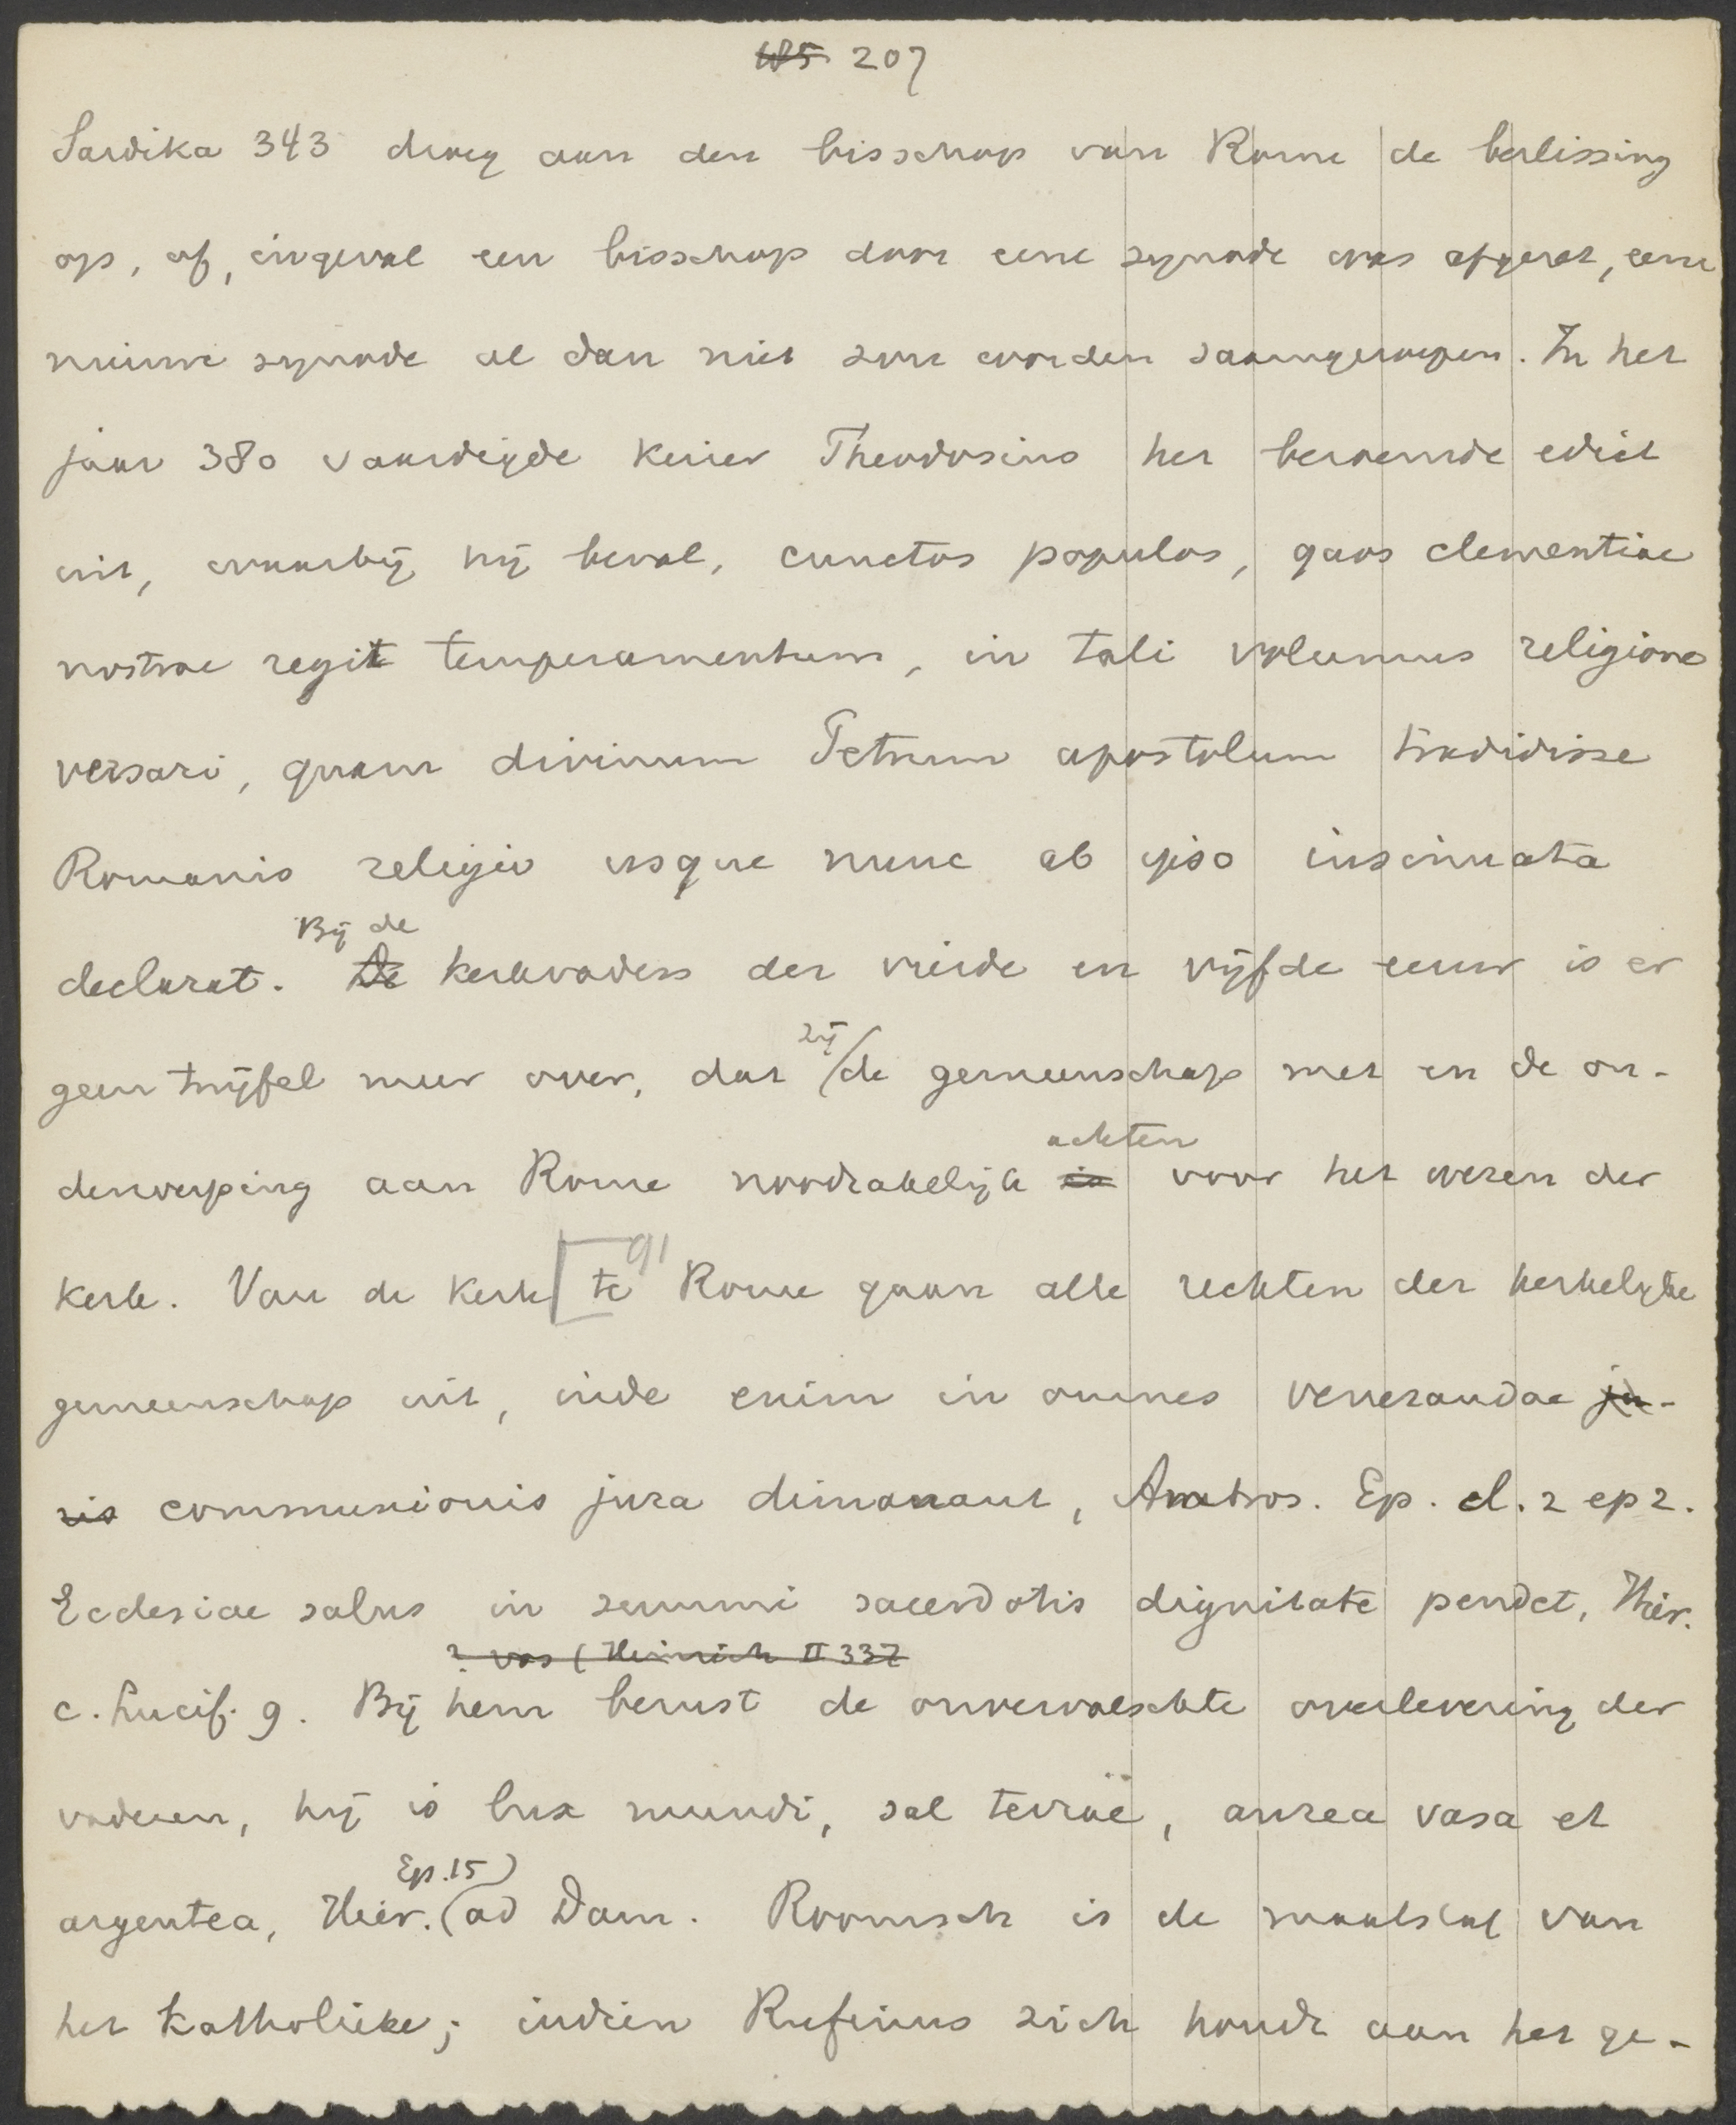 185 207
Sardika 343 droeg aan den bisschop van Rome de beslissing
op, of, ingeval een bisschop door eene synode was afgezet, eene
nieuwe synode al dan niet zou worden saamgeroepen. In het
jaar 380 vaardigde keizer Theodosius het beroemde edict
uit, waarbij hij beval, cunctos populos, quos clementiae
nostrae regit temperamentum, in tali volumus religione
versari, quam divinum Petrum apostolum tradidisse
Romanis religio usque nunc ab ipso insinuata
Bij de
declarat. De kerkvaders der vierde en vijfde eeuw is er
zij
geen twijfel meer over, dat de gemeenschap met en de on-
achten
derwerping aan Rome noodzakelijk is voor het wezen der
91
kerk. Van de kerk te Rome gaan alle rechten der kerkelijke
gemeenschap uit, inde enim in omnes venerandae ju-
ris communionis jura dimanant, Ambros. Ep. cl. 2 ep 2.
Ecclesiae salus in summi sacerdotis dignitate pendet, Hier.
? vos (Heinrich II 337
c. Lucif. 9. Bij hem berust de onvervalschte overlevering der
vaderen, hij is lux mundi, sal terrae, aurea vasa et
Ep. 15)
argentea, Hier. (ad Dam. Roomsch is de maatstaf van
het Katholieke; indien Rufinus zich houdt aan het ge-